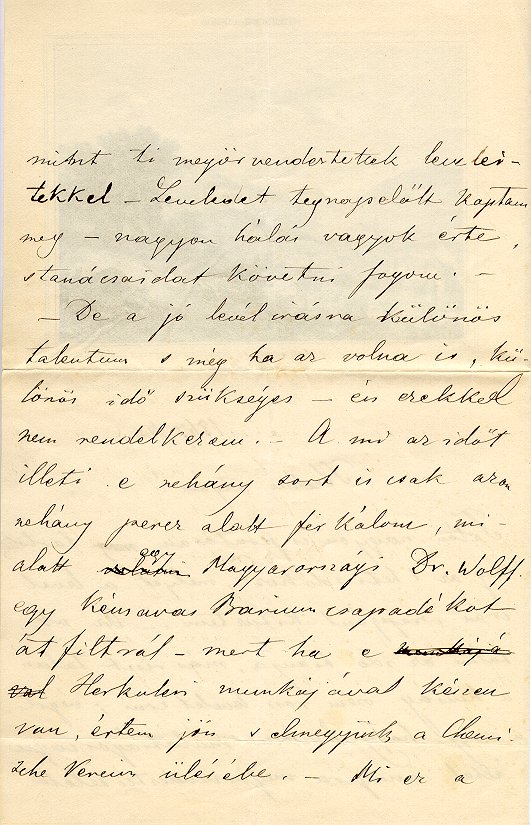 mint ti megörvendeztettek levelei-
tekkel – Leveledet tegnapelőtt kaptam
meg – nagyon hálás vagyok érte,
s tanácsaidat követni fogom. –
– De a jó levél irásra különös
talentum s még ha az volna is, kü-
lönös idő szükséges – én ezekkel
nem rendelkezem. – A mi az időt
illeti e nehány sort is csak azon
nehány percz alatt firkálom, mi-
alatt egy Magyarországi Dr. Wolff.
egy Kénsavas Barium csapadékot
át filtrál – mert ha e munkájá
val Herkulesi munkájával készen
van, értem jön s elmegyünk a Chemi-
sche Verein ülésébe. – Mi ez a